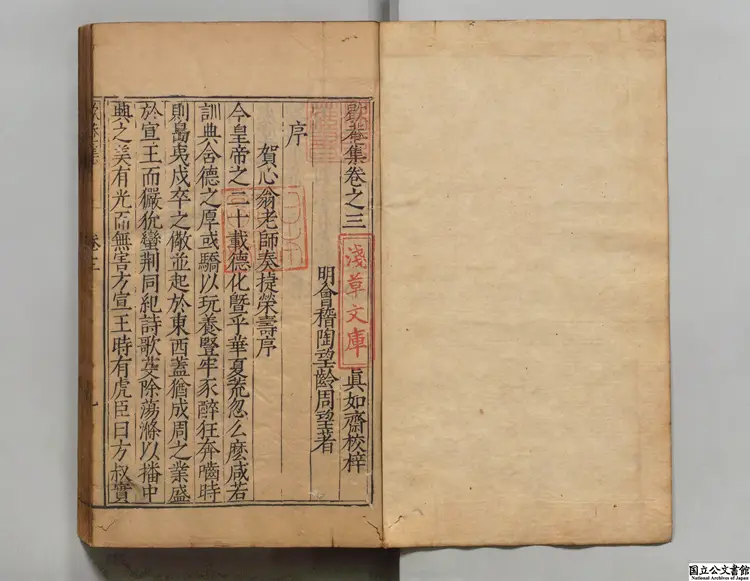 歇菴集卷之三
真如齋校梓
明會稽陶望齡周望著
序
賀心翁老師奏捷榮壽序
今皇帝之二十載德化曁乎華夏荒忽么麽咸若
訓典含德之厚或驕以玩養豎牢豕醉狂奔嚙時
則島夷戍卒之儆並起於東西蓋猶成周之業盛
於宣王而玁狁蠻荆同紀詩歌芟除蕩滌以播中
興之美有光而無害方宣王時有虎臣曰方叔實
淺草文庫
国立公文書館
National Archives of Japan